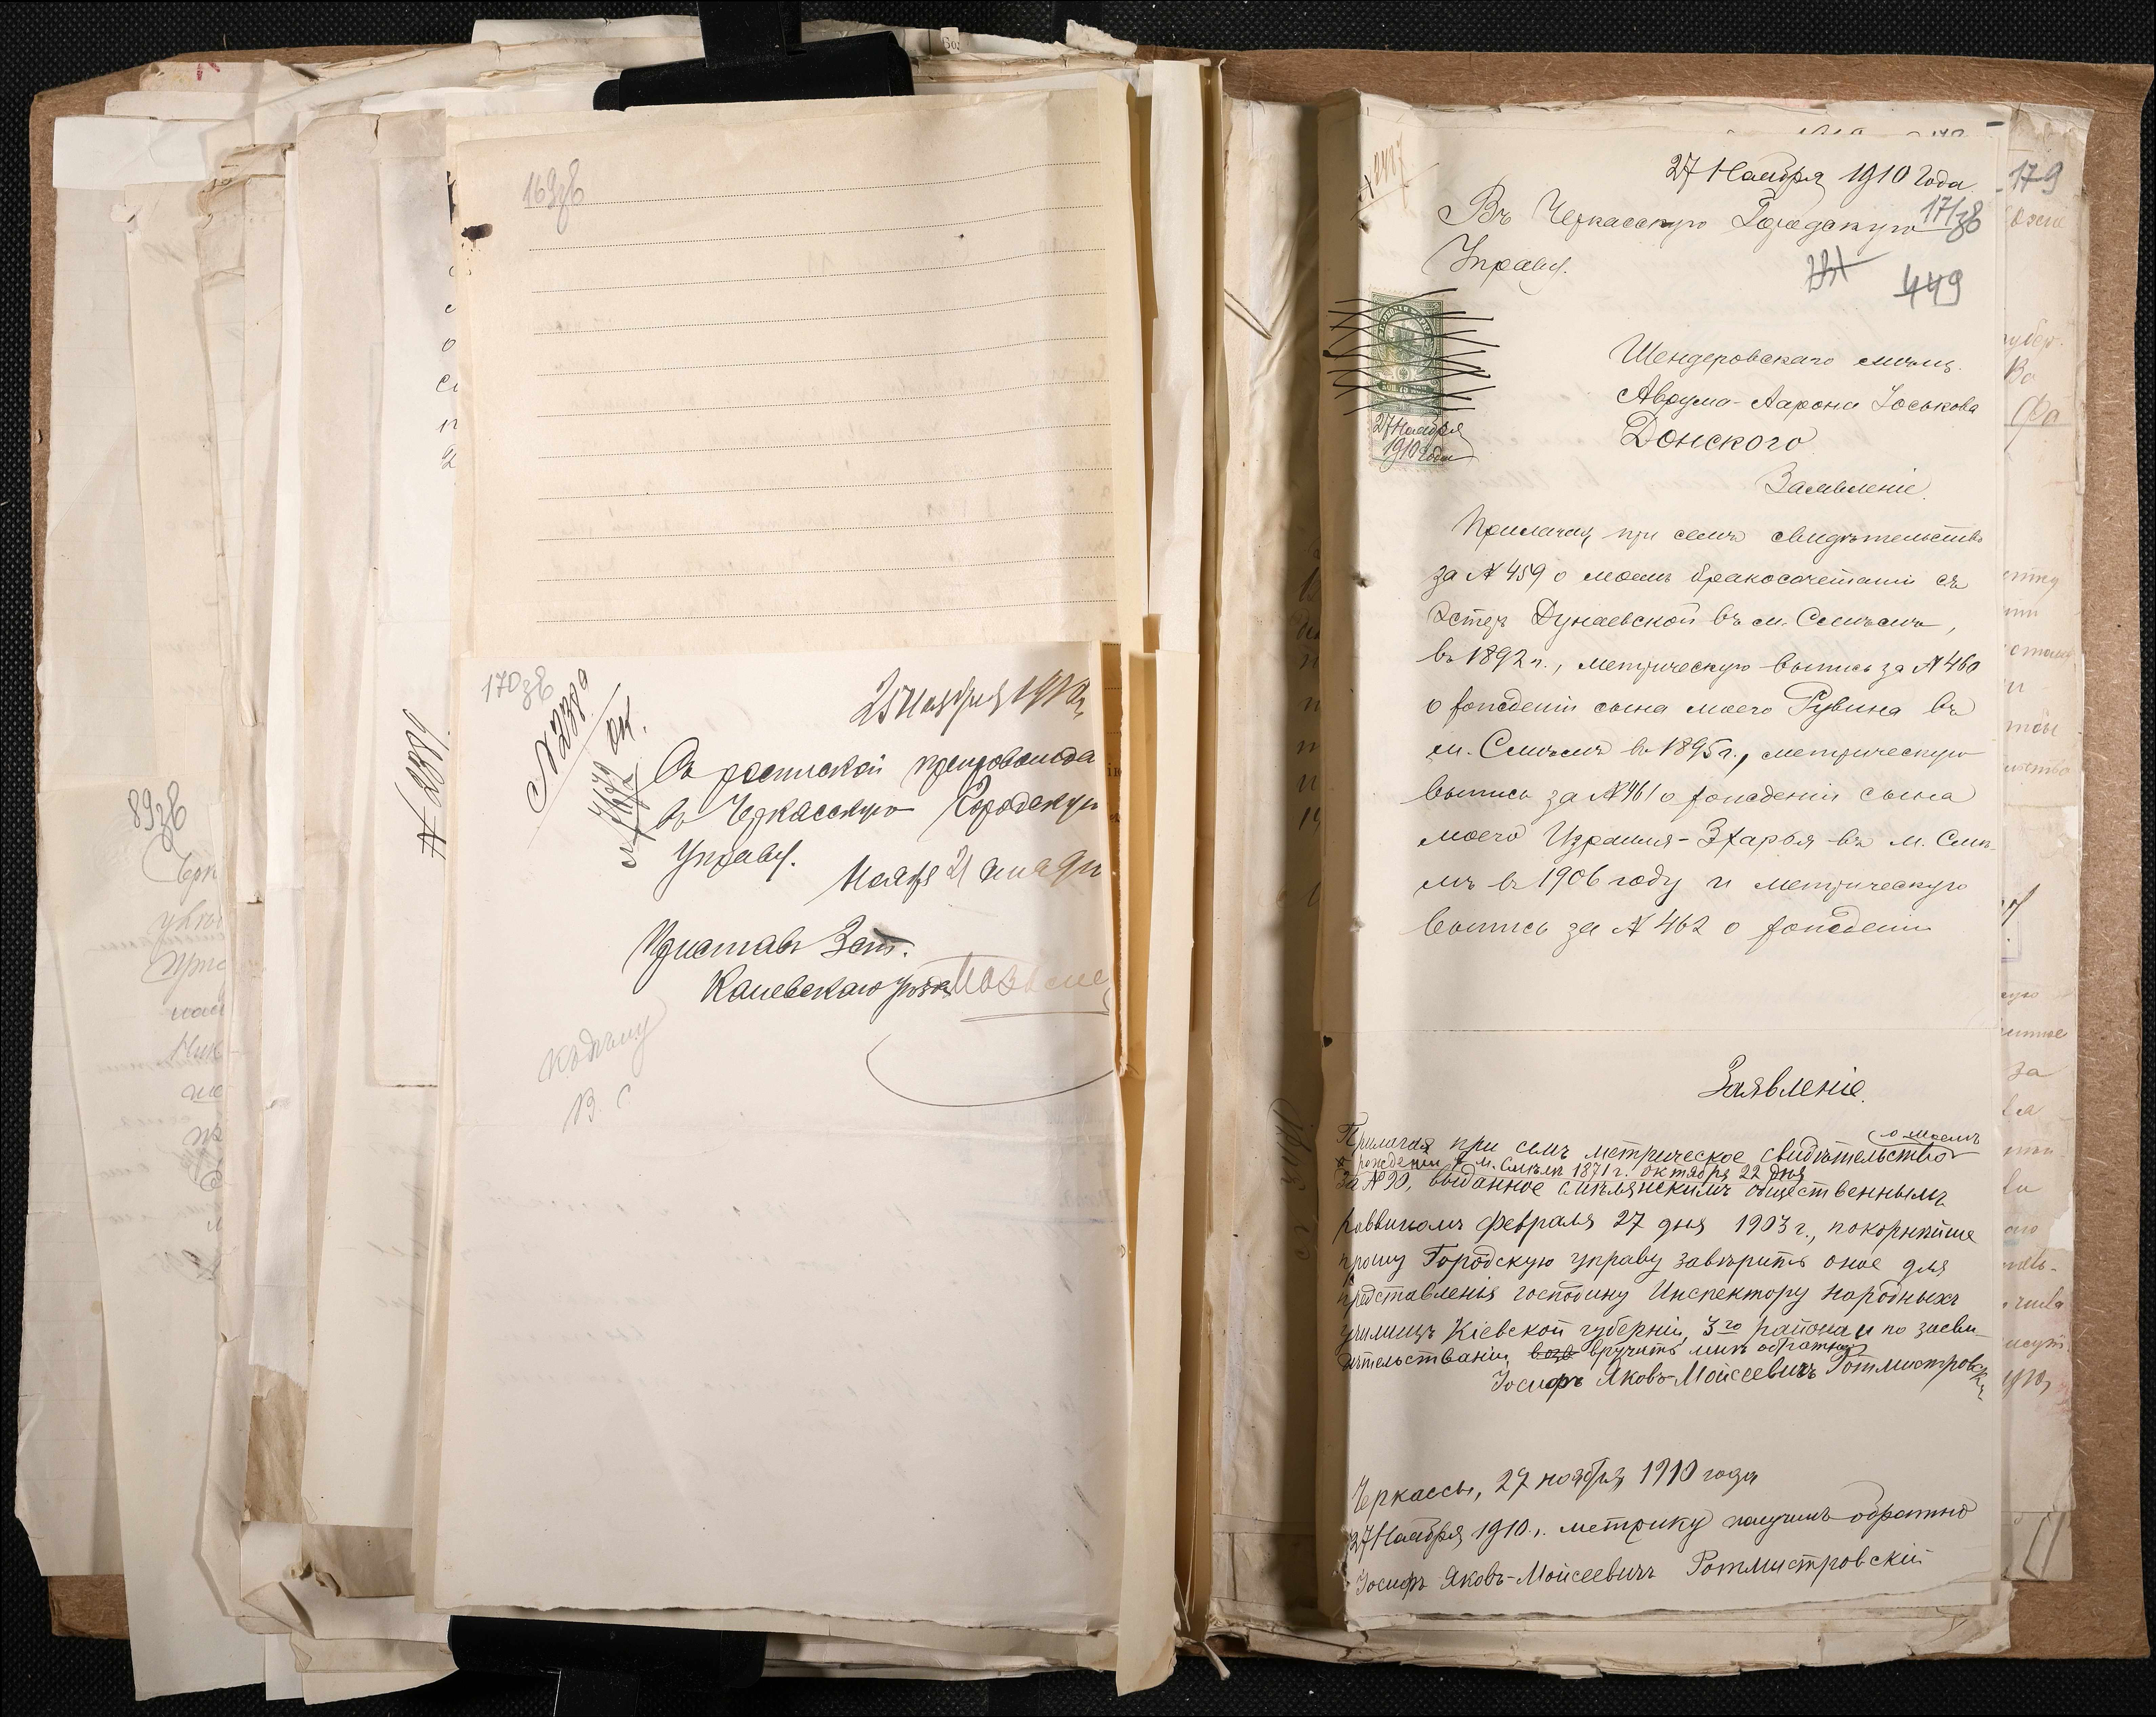 169зв
170зв
№ 2389
25 Ноября 1910 г.
Съ роспиской препровождa
въ Черкасскую Городскую
Управу.
Ноября 21 дня
Приставъ
Каневскаго уѣзда
Къ дѣлу
В. С
№ 2389
89зв
27 Ноября 1910 Года.
Въ Черкасскую Городскую
Управу.
171зв
449
179
Шендеровскаго мѣщ.
Аврума-Аарона Іоськова
Донского
27 Ноября
1910 года
Заявленіе.
Прилагая при семъ свидѣтельство
за № 459 о моемъ бракосочетаніи съ
Эстеръ Дунаевской въ м. Смѣлѣ,
въ 1892 г., метрическую выпись за № 460
о рожденіи сына моего Рувина въ
м. Смѣлѣ въ 1895 г., метрическую
выпись за № 461 о рожденіи сына
моего Израиля-Зхарья въ м. Смѣ-
лѣ въ 1906 году и метрическую
выпись за № 462 о рожденіи
Заявленіе.
Прилагая при семъ метрическое свидѣтельство о моемъ
рожденіи въ м. Смѣлѣ 1871 г. октября 22 дня
за № 90, выданное смѣлянскимъ общественнымъ
раввиномъ февраля 27 дня 1903 г., покорнѣйше
прошу Городскую управу завѣрить оное для
представленія господину Инспектору народныхъ
училищъ Кіевской губерніи, 3го района и по засви-
дѣтельствованіи, вручить мнѣ обратно
Іосифъ Яковъ-Моисеевичъ Ротмистровскій
Черкассы, 27 ноября 1910 года
27 Ноября 1910 г. метрику получилъ обратно
Іосифъ Яковъ-Моисеевичъ Ротмистровскій